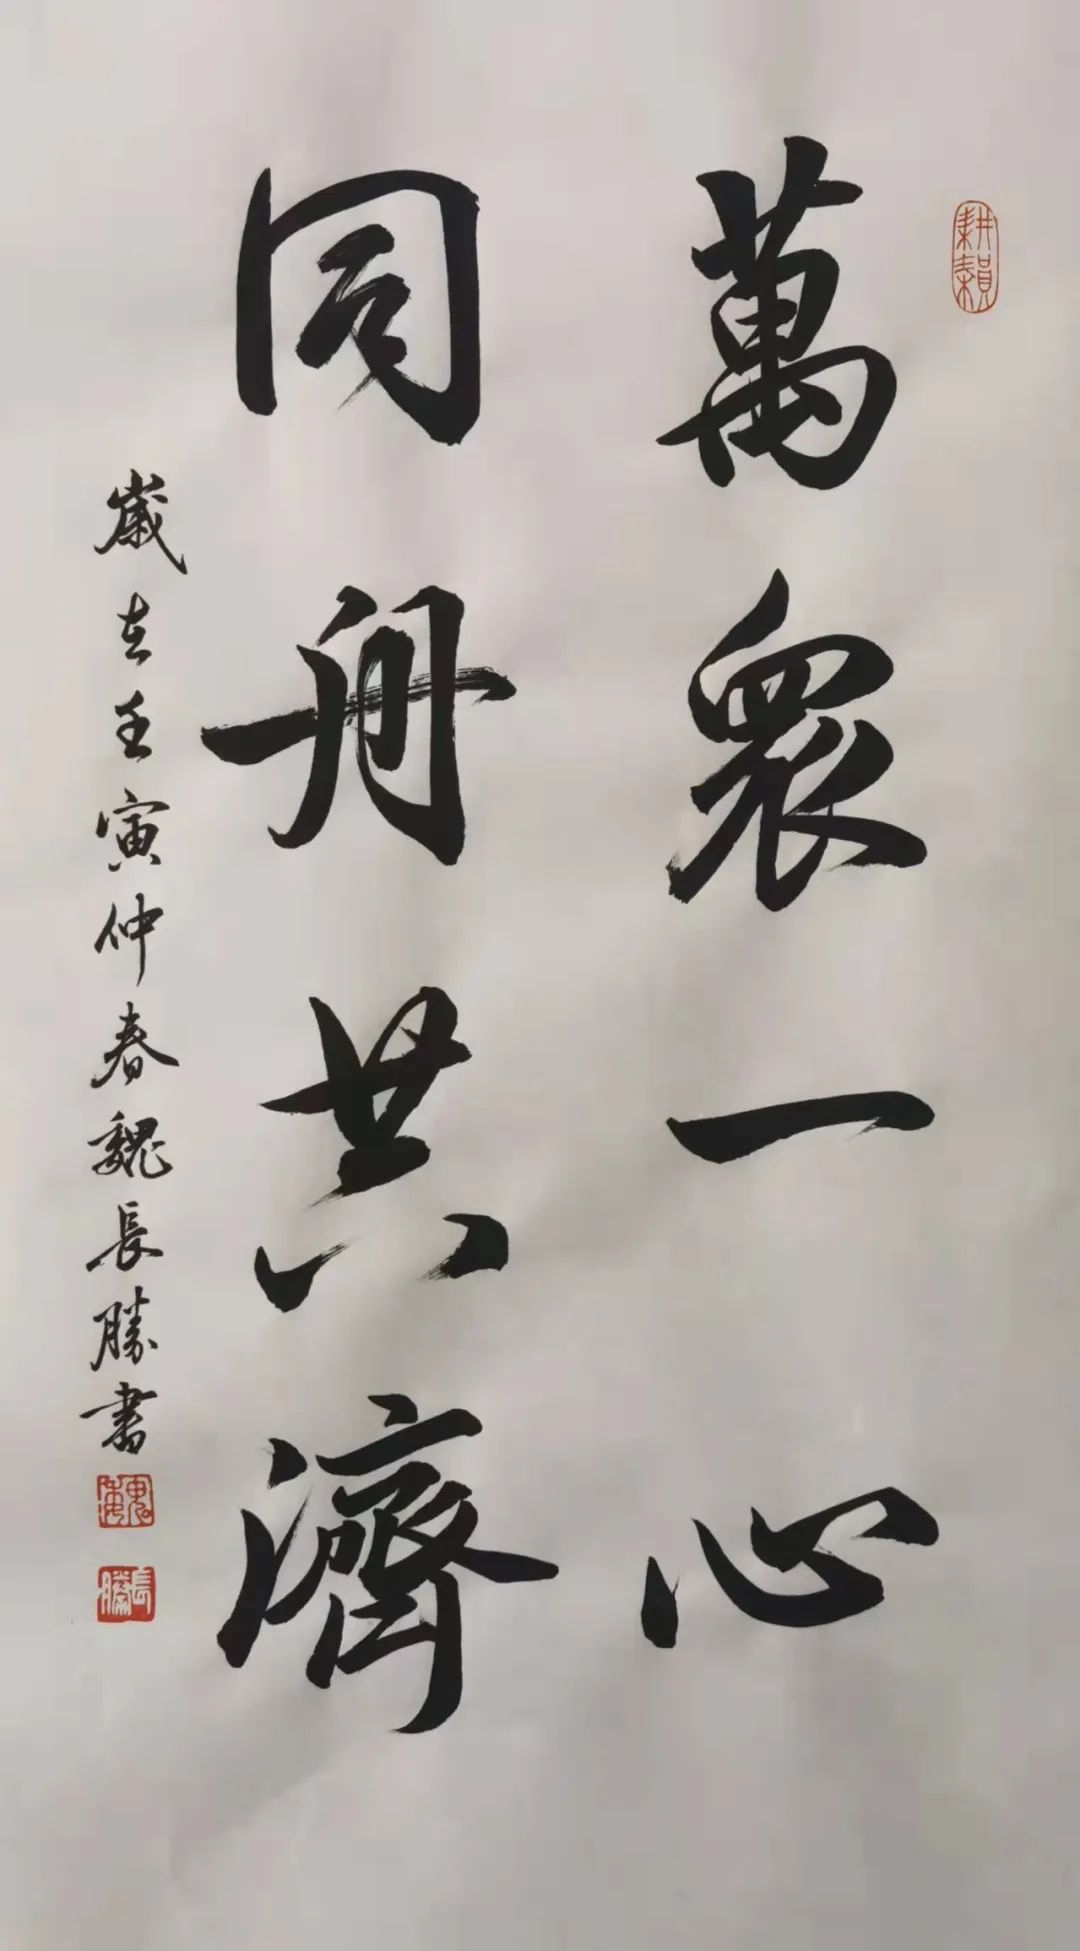 萬眾一心
同舟共濟
歲在壬寅仲春魏長勝書
長勝